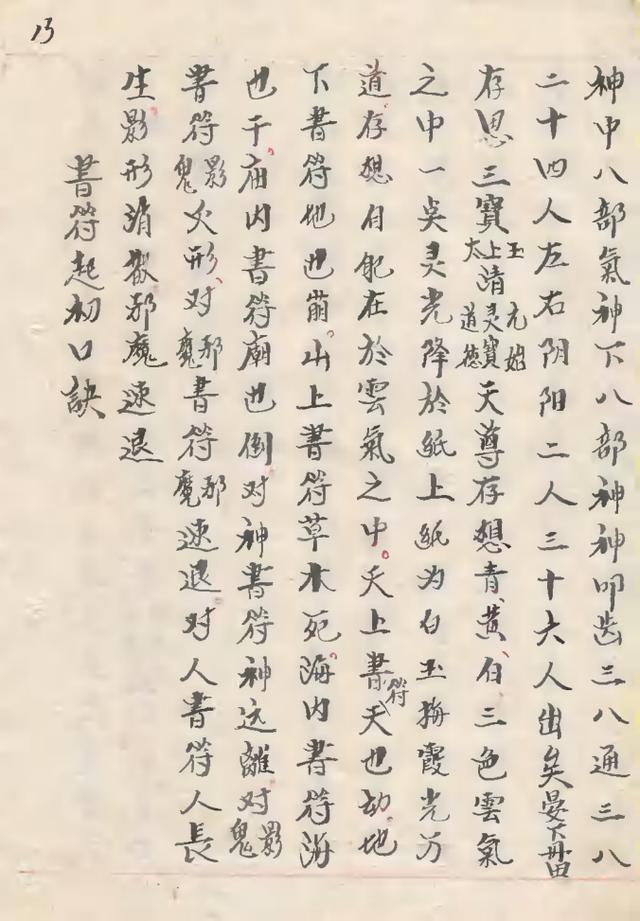 13
神中八部氣神下八部神神叩齿三八通三八
二十四人左右阴阳二人三十六人出矣
存思三寳太上玉清道德灵寳元始天尊存想青黄白三色雲氣
之中一点灵光降於紙上紙为白玉梅霞光万
道存想自躯在於雲氣之中天上書符天也动地
下書符地也崩山上書符草木死海内書符海
也干庙内書符廟也倒对神書符神远離对鬼影
書符鬼影火形对魔邪書符魔邪速退对人書符人長
生影形消散邪魔速退
書符起初口訣